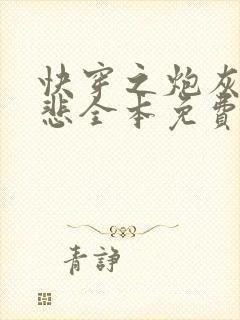 快穿之炮灰
悲全本免費
青諍